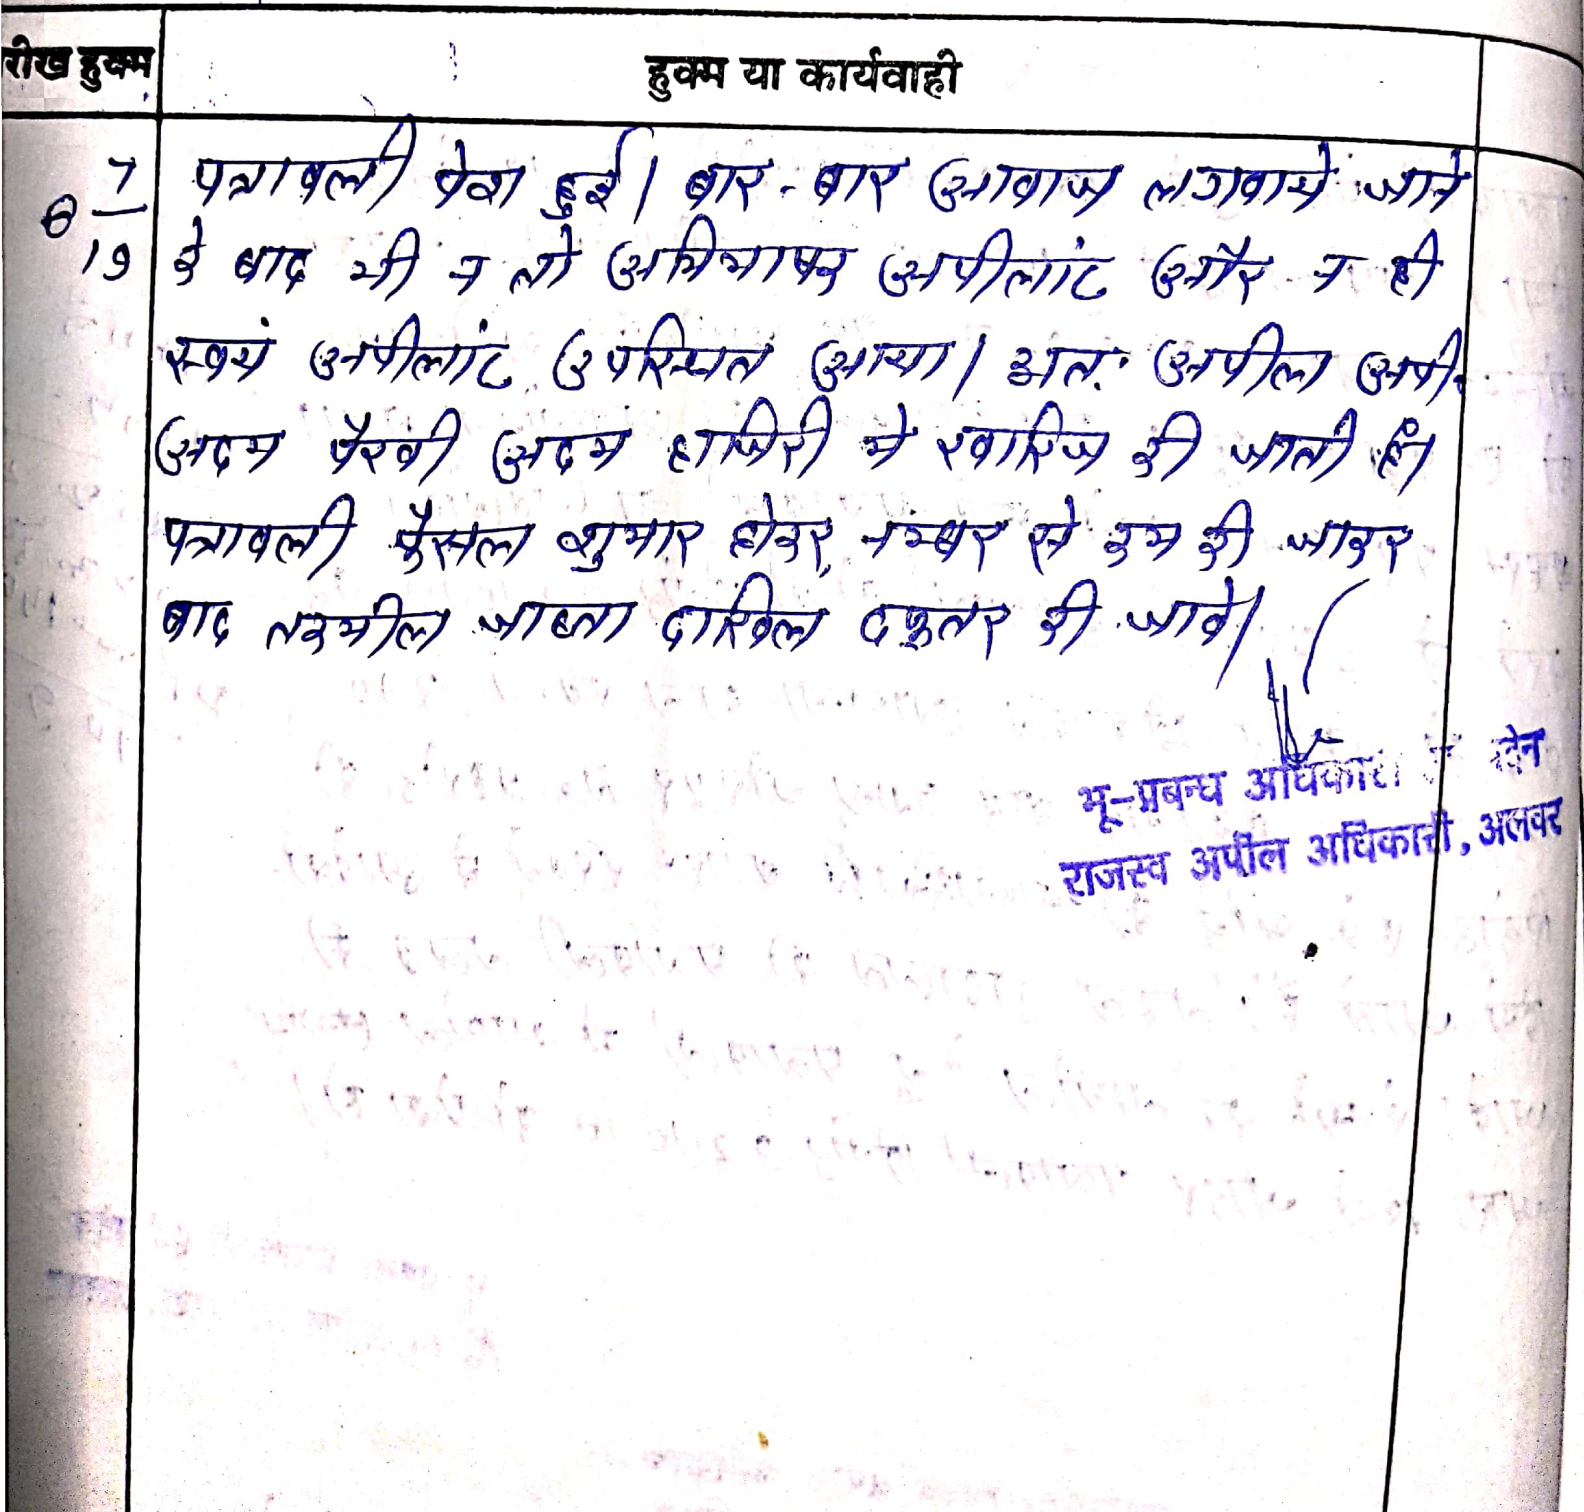 रीख हुक्म
हुक्म या कार्यवाही
8 7/19
पत्रावली पेश हुई। बार-बार आवाज लगवाये जाने
के बाद भी न तो अभिभाषक अपीलांट और न ही
स्वयं अपीलांट उपस्थित आया। अतः अपील अपी.
अदम पैरवी अदम हाजिरी मे खारिज की जाती है।
पत्रावली फैसल शुमार होकर, नम्बर से कम की जाकर
बाद तकमील जाब्ता दाखिल दफ्तर की जावे।
भू-प्रबन्ध अधिकारी
राजस्व अपील अधिकारी, अलवर